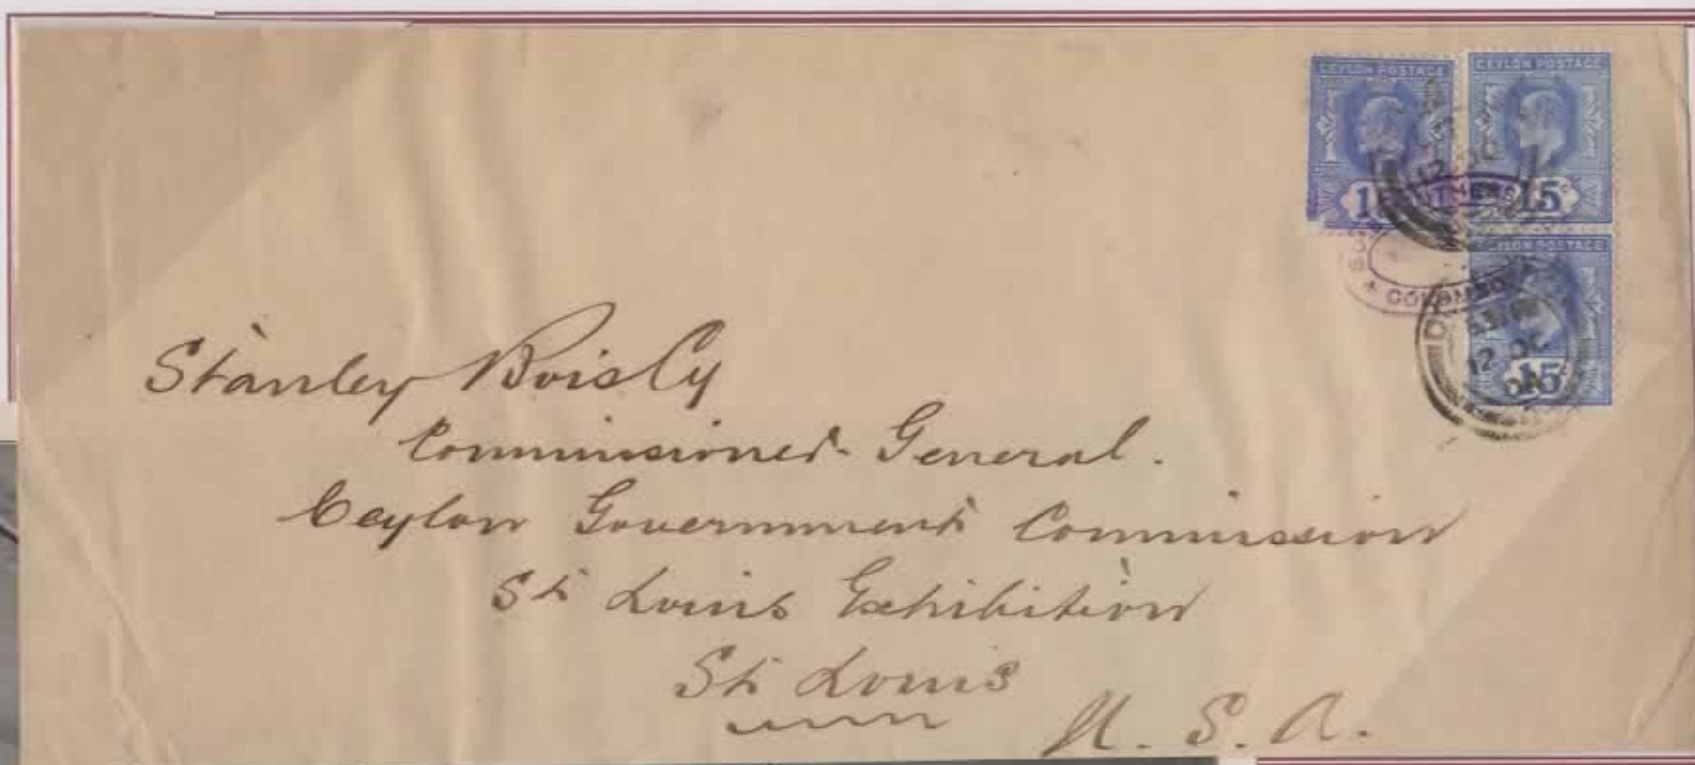 CEYLON POSTAGE
CEYLON POSTAGE
15
15
CEYLON POSTAGE
COLOMBO
12 OC
15
Stanley Bois Esq
Commissioner General.
Ceylon Government Commission
St Louis Exhibition
St Louis
U. S. A.